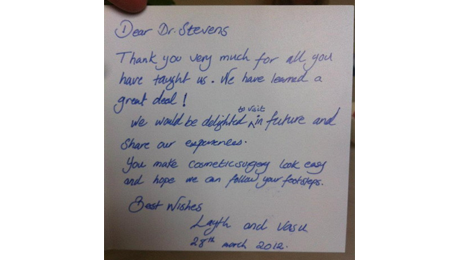 Dear Dr. Stevens
Thank you very much for all you
have taught us. We have learned a
great deal!
We would be delighted to visit in future and
share our experiences.
You make cosmetic surgery look easy
and hope we can follow your footsteps.
Best Wishes
Layth and Vasu
28th march 2012.